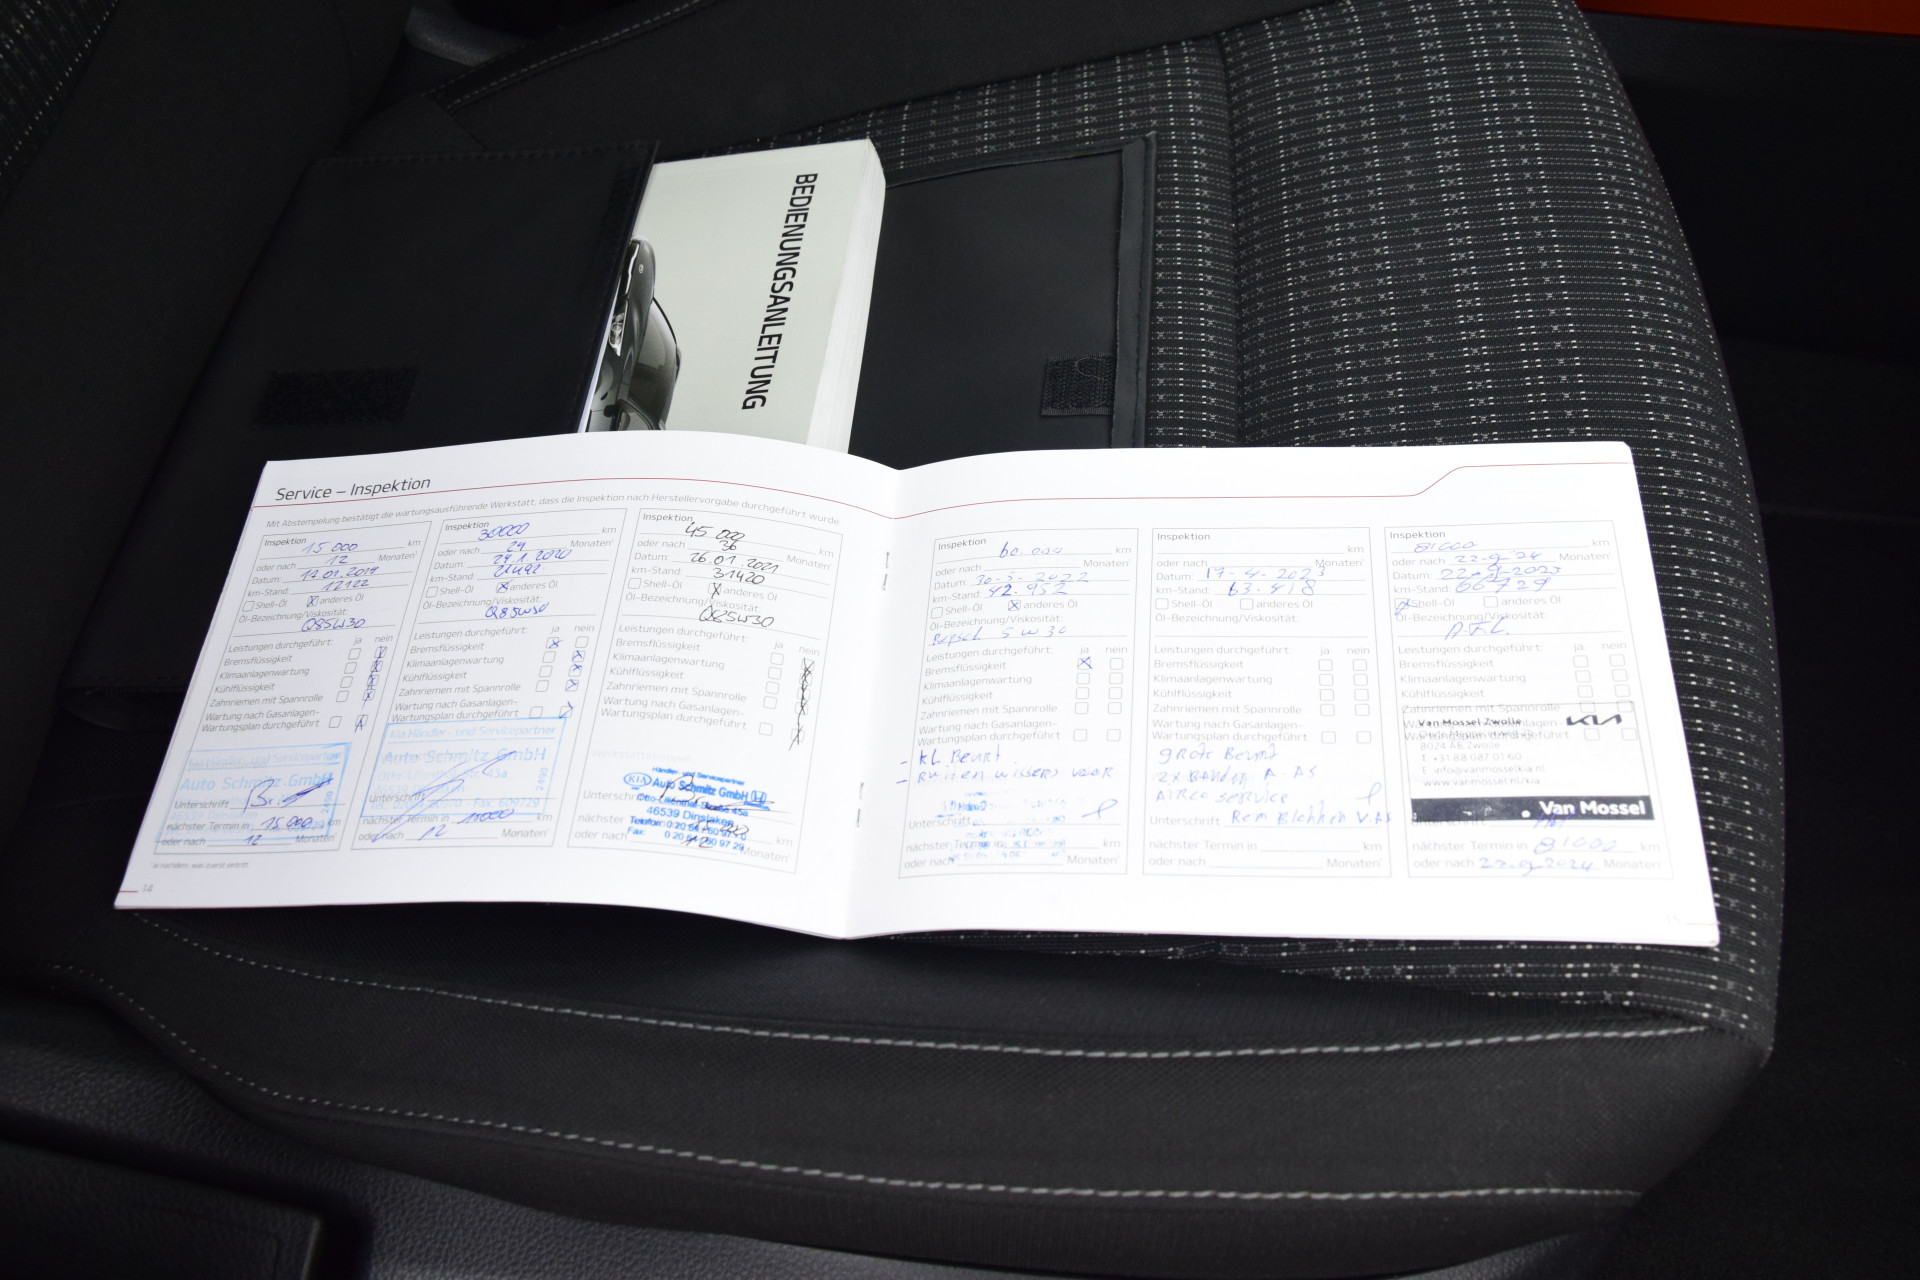 BEDIENUNGSANLEITUNG
Service – Inspektion
Mit Abstempelung bestätigt die wartungsausführende Werkstatt, dass die Inspektion nach Herstellervorgabe durchgeführt wurde.
Inspektion
15 000 km
oder nach 12 Monaten¹
Datum: 17.01.2019
km-Stand: 12122
Shell-Öl anderes Öl
Öl-Bezeichnung/Viskosität:
Q85W30
Leistungen durchgeführt: ja nein
Bremsflüssigkeit
Klimaanlagenwartung
Kühlflüssigkeit
Zahnriemen mit Spannrolle
Wartung nach Gasanlagen-
Wartungsplan durchgeführt
Auto Schmitz GmbH
Unterschrift
nächster Termin in 15 000 km
oder nach 12 Monaten¹
¹ je nachdem, was zuerst eintritt.
14
Inspektion
30000 km
oder nach 24 Monaten¹
Datum: 24.1.2020
km-Stand: 21492
Shell-Öl anderes Öl
Öl-Bezeichnung/Viskosität:
Q85W30
Leistungen durchgeführt: ja nein
Bremsflüssigkeit
Klimaanlagenwartung
Kühlflüssigkeit
Zahnriemen mit Spannrolle
Wartung nach Gasanlagen-
Wartungsplan durchgeführt
Kia Händler- und Servicepartner
Auto Schmitz GmbH
Otto-Lilienthal-Straße 45a
Unterschrift
nächster Termin in 15000 km
oder nach 12 Monaten¹
Inspektion
45 000 km
oder nach 36 Monaten¹
Datum: 26.01.2021
km-Stand: 31420
Shell-Öl anderes Öl
Öl-Bezeichnung/Viskosität
Q85W30
Leistungen durchgeführt: ja nein
Bremsflüssigkeit
Klimaanlagenwartung
Kühlflüssigkeit
Zahnriemen mit Spannrolle
Wartung nach Gasanlagen-
Wartungsplan durchgeführt
Händler- und Servicepartner
KIA Auto Schmitz GmbH
Unterschrift
Otto-Lilienthal-Straße 45a
46539 Dinslaken
nächster Termin in km
oder nach 12 Monaten¹
Inspektion
60.000 km
oder nach Monaten¹
Datum: 30-5-2022
km-Stand: 42.952
Shell-Öl anderes Öl
Öl-Bezeichnung/Viskosität:
Repsol 5W30
Leistungen durchgeführt: ja nein
Bremsflüssigkeit
Klimaanlagenwartung
Kühlflüssigkeit
Zahnriemen mit Spannrolle
Wartung nach Gasanlagen-
Wartungsplan durchgeführt
- KL Beurt
- Ruitenwissers voor
Unterschrift
nächster Termin in
oder nach Monaten¹
Inspektion
km
oder nach Monaten¹
Datum: 19-4-2023
km-Stand: 63.418
Shell-Öl anderes Öl
Öl-Bezeichnung/Viskosität:
Leistungen durchgeführt: ja nein
Bremsflüssigkeit
Klimaanlagenwartung
Kühlflüssigkeit
Zahnriemen mit Spannrolle
Wartung nach Gasanlagen-
Wartungsplan durchgeführt
grote Beurt
2x Banden A.AS
Airco service
Unterschrift Rem Blokken V.AS
nächster Termin in km
oder nach Monaten¹
Inspektion
81000 km
oder nach 22-9-'24 Monaten¹
Datum: 22-9-2023
km-Stand: 66729
Shell-Öl anderes Öl
Öl-Bezeichnung/Viskosität:
Leistungen durchgeführt: ja nein
Bremsflüssigkeit
Klimaanlagenwartung
Kühlflüssigkeit
Zahnriemen mit Spannrolle
Van Mossel Zwolle
KIA
8024 AB Zwolle
T +31 88 087 01 60
E info@vanmosselkia.nl
www.vanmossel.nl/kia
Van Mossel
nächster Termin in 81000 km
oder nach 22-9-2024 Monaten¹